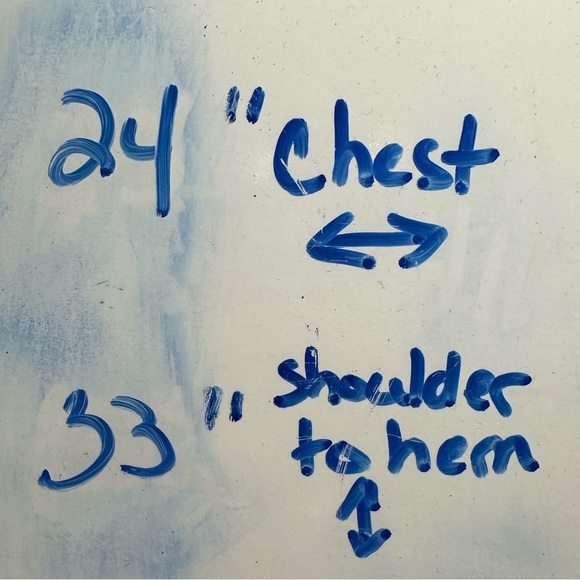 24" Chest
↔
33" shoulder
to hem
↕